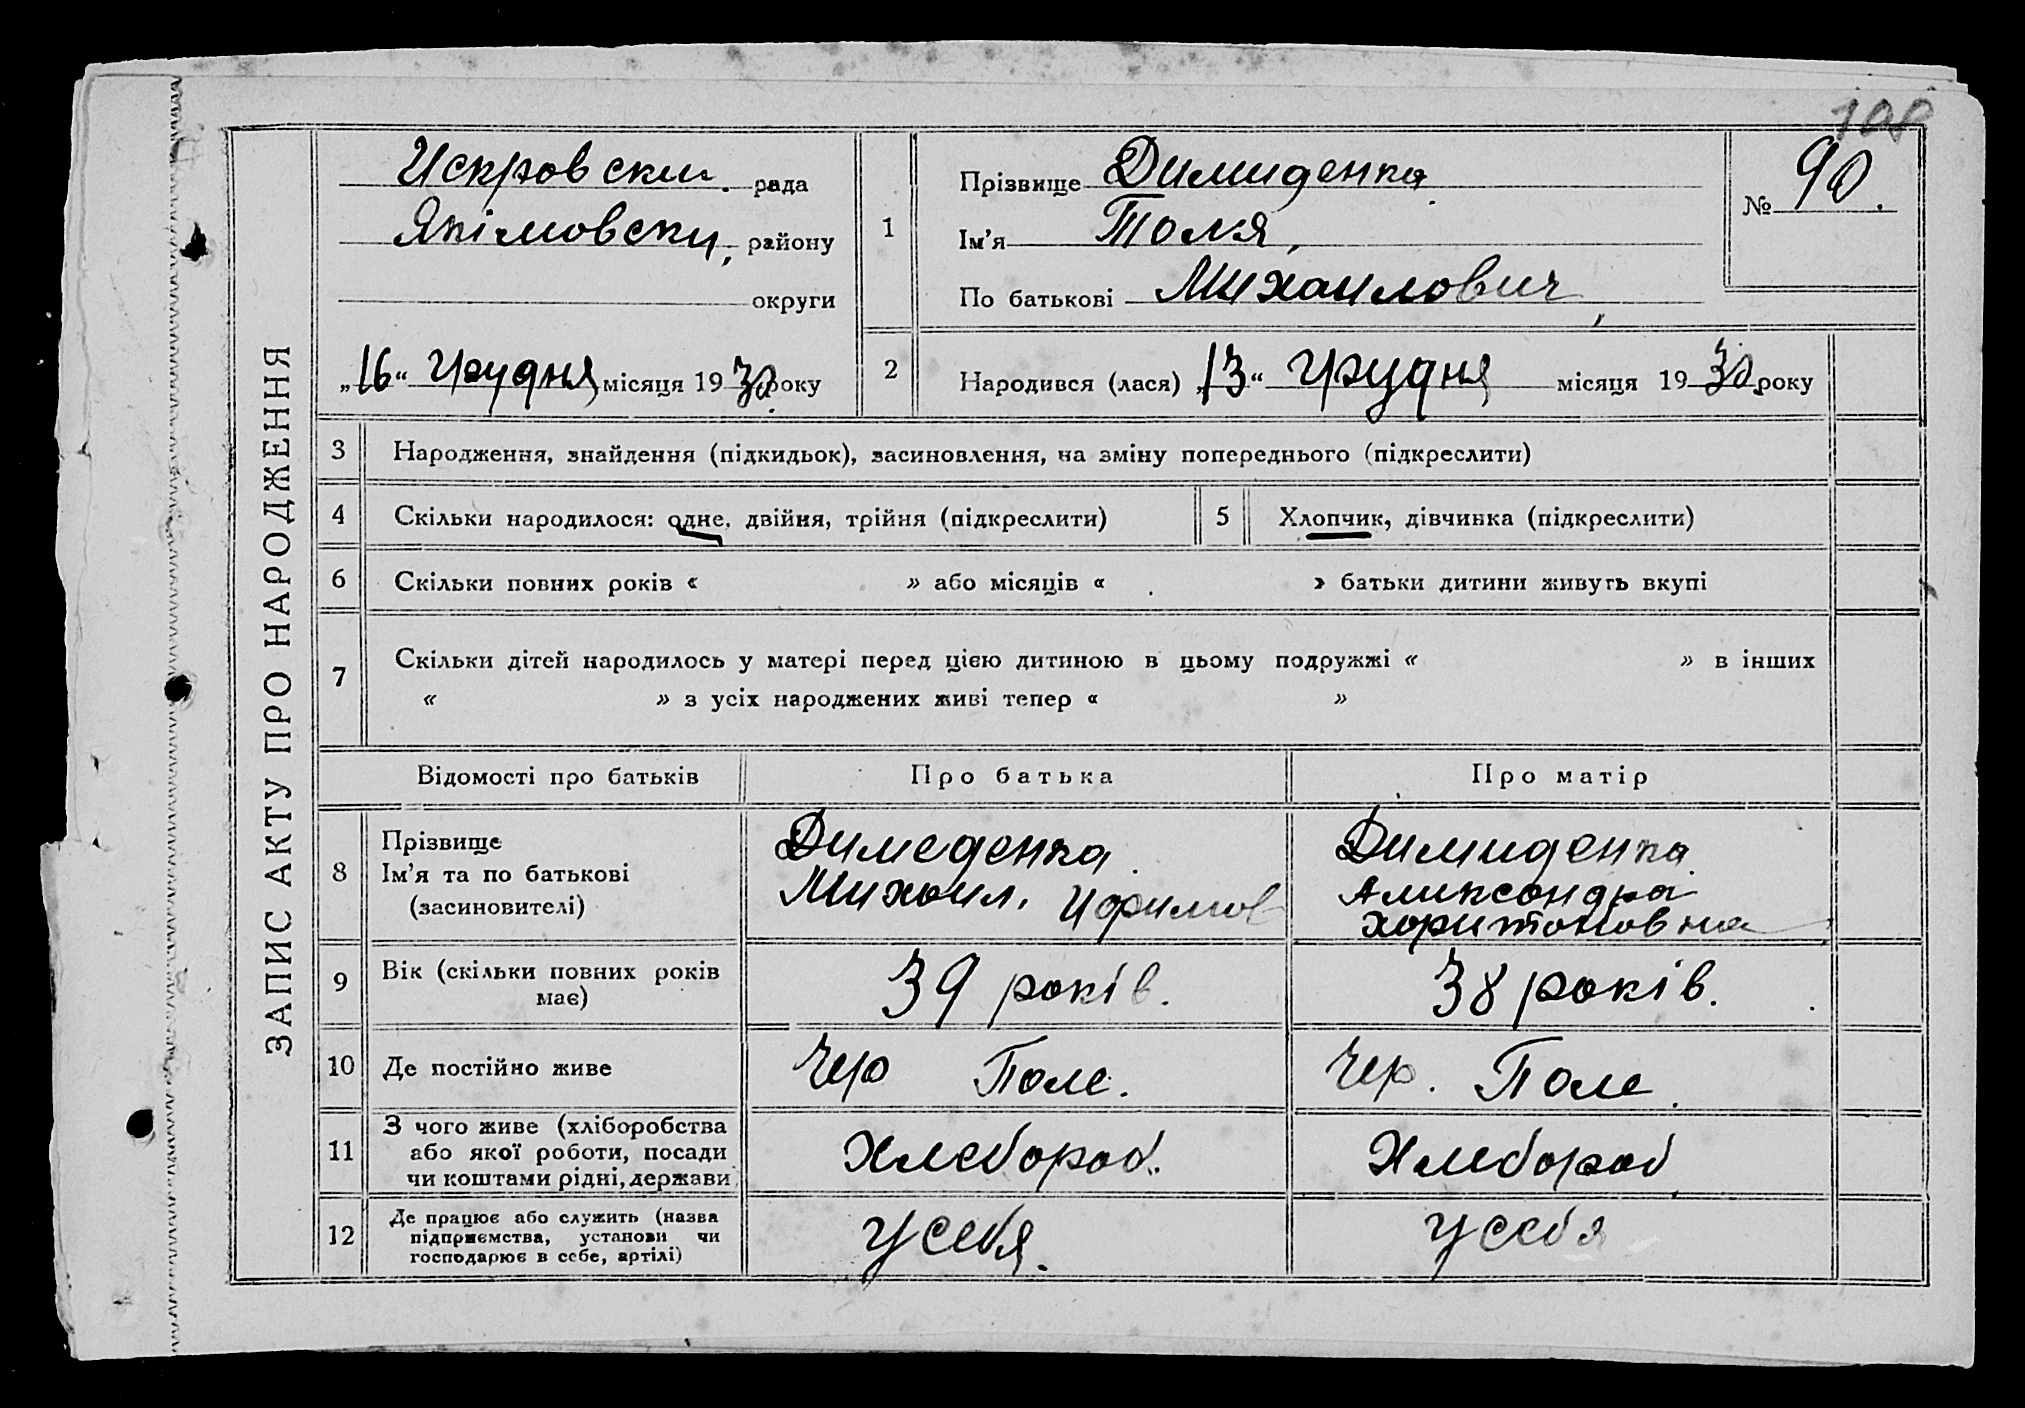 108
ЗАПИС АКТУ ПРО НАРОДЖЕННЯ
Искровски. рада
Якімовски, району
округи
„16“ грудня місяця 1930 року
1
Прізвище Димиденка
Ім'я Толя,
По батькові Михаилович,
№ 90.
2
Народився (лася) „13“ грудня місяця 1930 року
3 Народження, знайдення (підкидьок), засиновлення, на зміну попереднього (підкреслити)
4 Скільки народилося: одне, двійня, трійня (підкреслити)
5 Хлопчик, дівчинка (підкреслити)
6 Скільки повних років « » або місяців « » батьки дитини живуть вкупі
7 Скільки дітей народилось у матері перед цією дитиною в цьому подружжі « » в інших
« » з усіх народжених живі тепер « »
Відомості про батьків Про батька Про матір
8
Прізвище
Ім'я та по батькові
(засиновителі)
Димеденка
Михаил.
Димиденка
Александра
Харитоновна
9
Вік (скільки повних років
має)
39 років.
38 років.
10 Де постійно живе
Чер Поле.
Чер. Поле.
11
З чого живе (хліборобства
або якої роботи, посади
чи коштами рідні, держави
Хлебороб.
Хлебороб
12
Де працює або служить (назва
підприємства, установи чи
господарює в себе, артілі)
У себя.
У себя